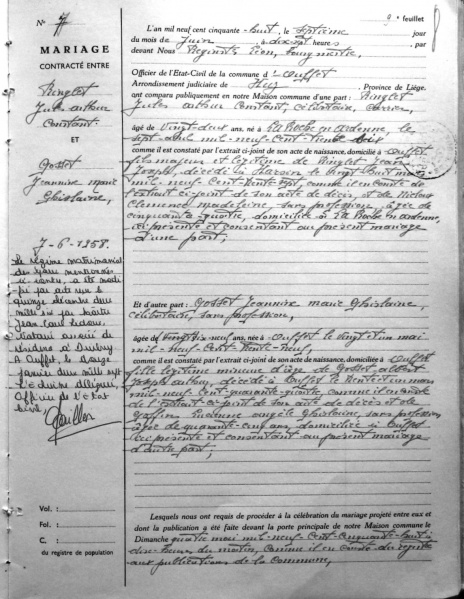 N° 7
MARIAGE
CONTRACTÉ ENTRE
Ringlet
Jules Arthur
Constant
ET
Gosset
Jeannine Marie
Ghislaine,
7-6-1958.
Le régime matrimonial
des époux mentionnés
ci-contre, a été modi-
fié par acte reçu le
quinze décembre deux
mille six par maître
Jean-Louis Ledoux,
Notaire
A Ouffet, le douze
janvier deux mille sept
L'échevin délégué,
Officier de l'état
civil
Vol. :
Fol. :
C. :
du registre de population
9e feuillet
L'an mil neuf cent cinquante-huit, le septième jour
du mois de Juin, à dix-sept heures, par
devant Nous Regnante Léon, bourgmestre,
Officier de l'Etat-Civil de la commune d' Ouffet
Arrondissement judiciaire de Huy, Province de Liège.
ont comparu publiquement en notre Maison commune d'une part : Ringlet
Jules Arthur Constant, célibataire, carrier,
âgé de vingt-deux ans, né à La Roche en Ardenne, le
sept avril mil neuf-cent-trente six
comme il est constaté par l'extrait ci-joint de son acte de naissance, domicilié à Ouffet
fils majeur et légitime de Ringlet Jean
Joseph, décédé à Harsin le vingt huit mars
mil-neuf-cent-trente-sept, comme il en conste de
l'extrait ci-joint de son acte de décès, et de
Clémence Madeleine, sans profession, âgée de
cinquante-quatre, domiciliée à La Roche en Ardenne,
ici présente et consentant au présent mariage
d'une part,
Et d'autre part : Gosset Jeannine Marie Ghislaine,
célibataire, sans profession,
âgée de vingt dix-neuf ans, née à Ouffet le vingt et un mai
mil-neuf-cent-trente-neuf,
comme il est constaté par l'extrait ci-joint de son acte de naissance, domiciliée à Ouffet
fille légitime mineure d'âge de Gosset Albert
Joseph Arthur, décédé à Ouffet le trente et un mars
mil-neuf-cent-quarante-quatre, comme il en conste
de l'extrait ci-joint de son acte de décès et de
Lucienne Angèle Ghislaine, sans profession,
âgée de quarante-cinq ans, domiciliée à Ouffet
ici présente et consentant au présent mariage
d'autre part,
Lesquels nous ont requis de procéder à la célébration du mariage projeté entre eux et
dont la publication a été faite devant la porte principale de notre Maison commune le
Dimanche quatre mai mil-neuf-cent-cinquante-huit à
dix heures du matin, comme il en conste du registre
aux publications de la commune,